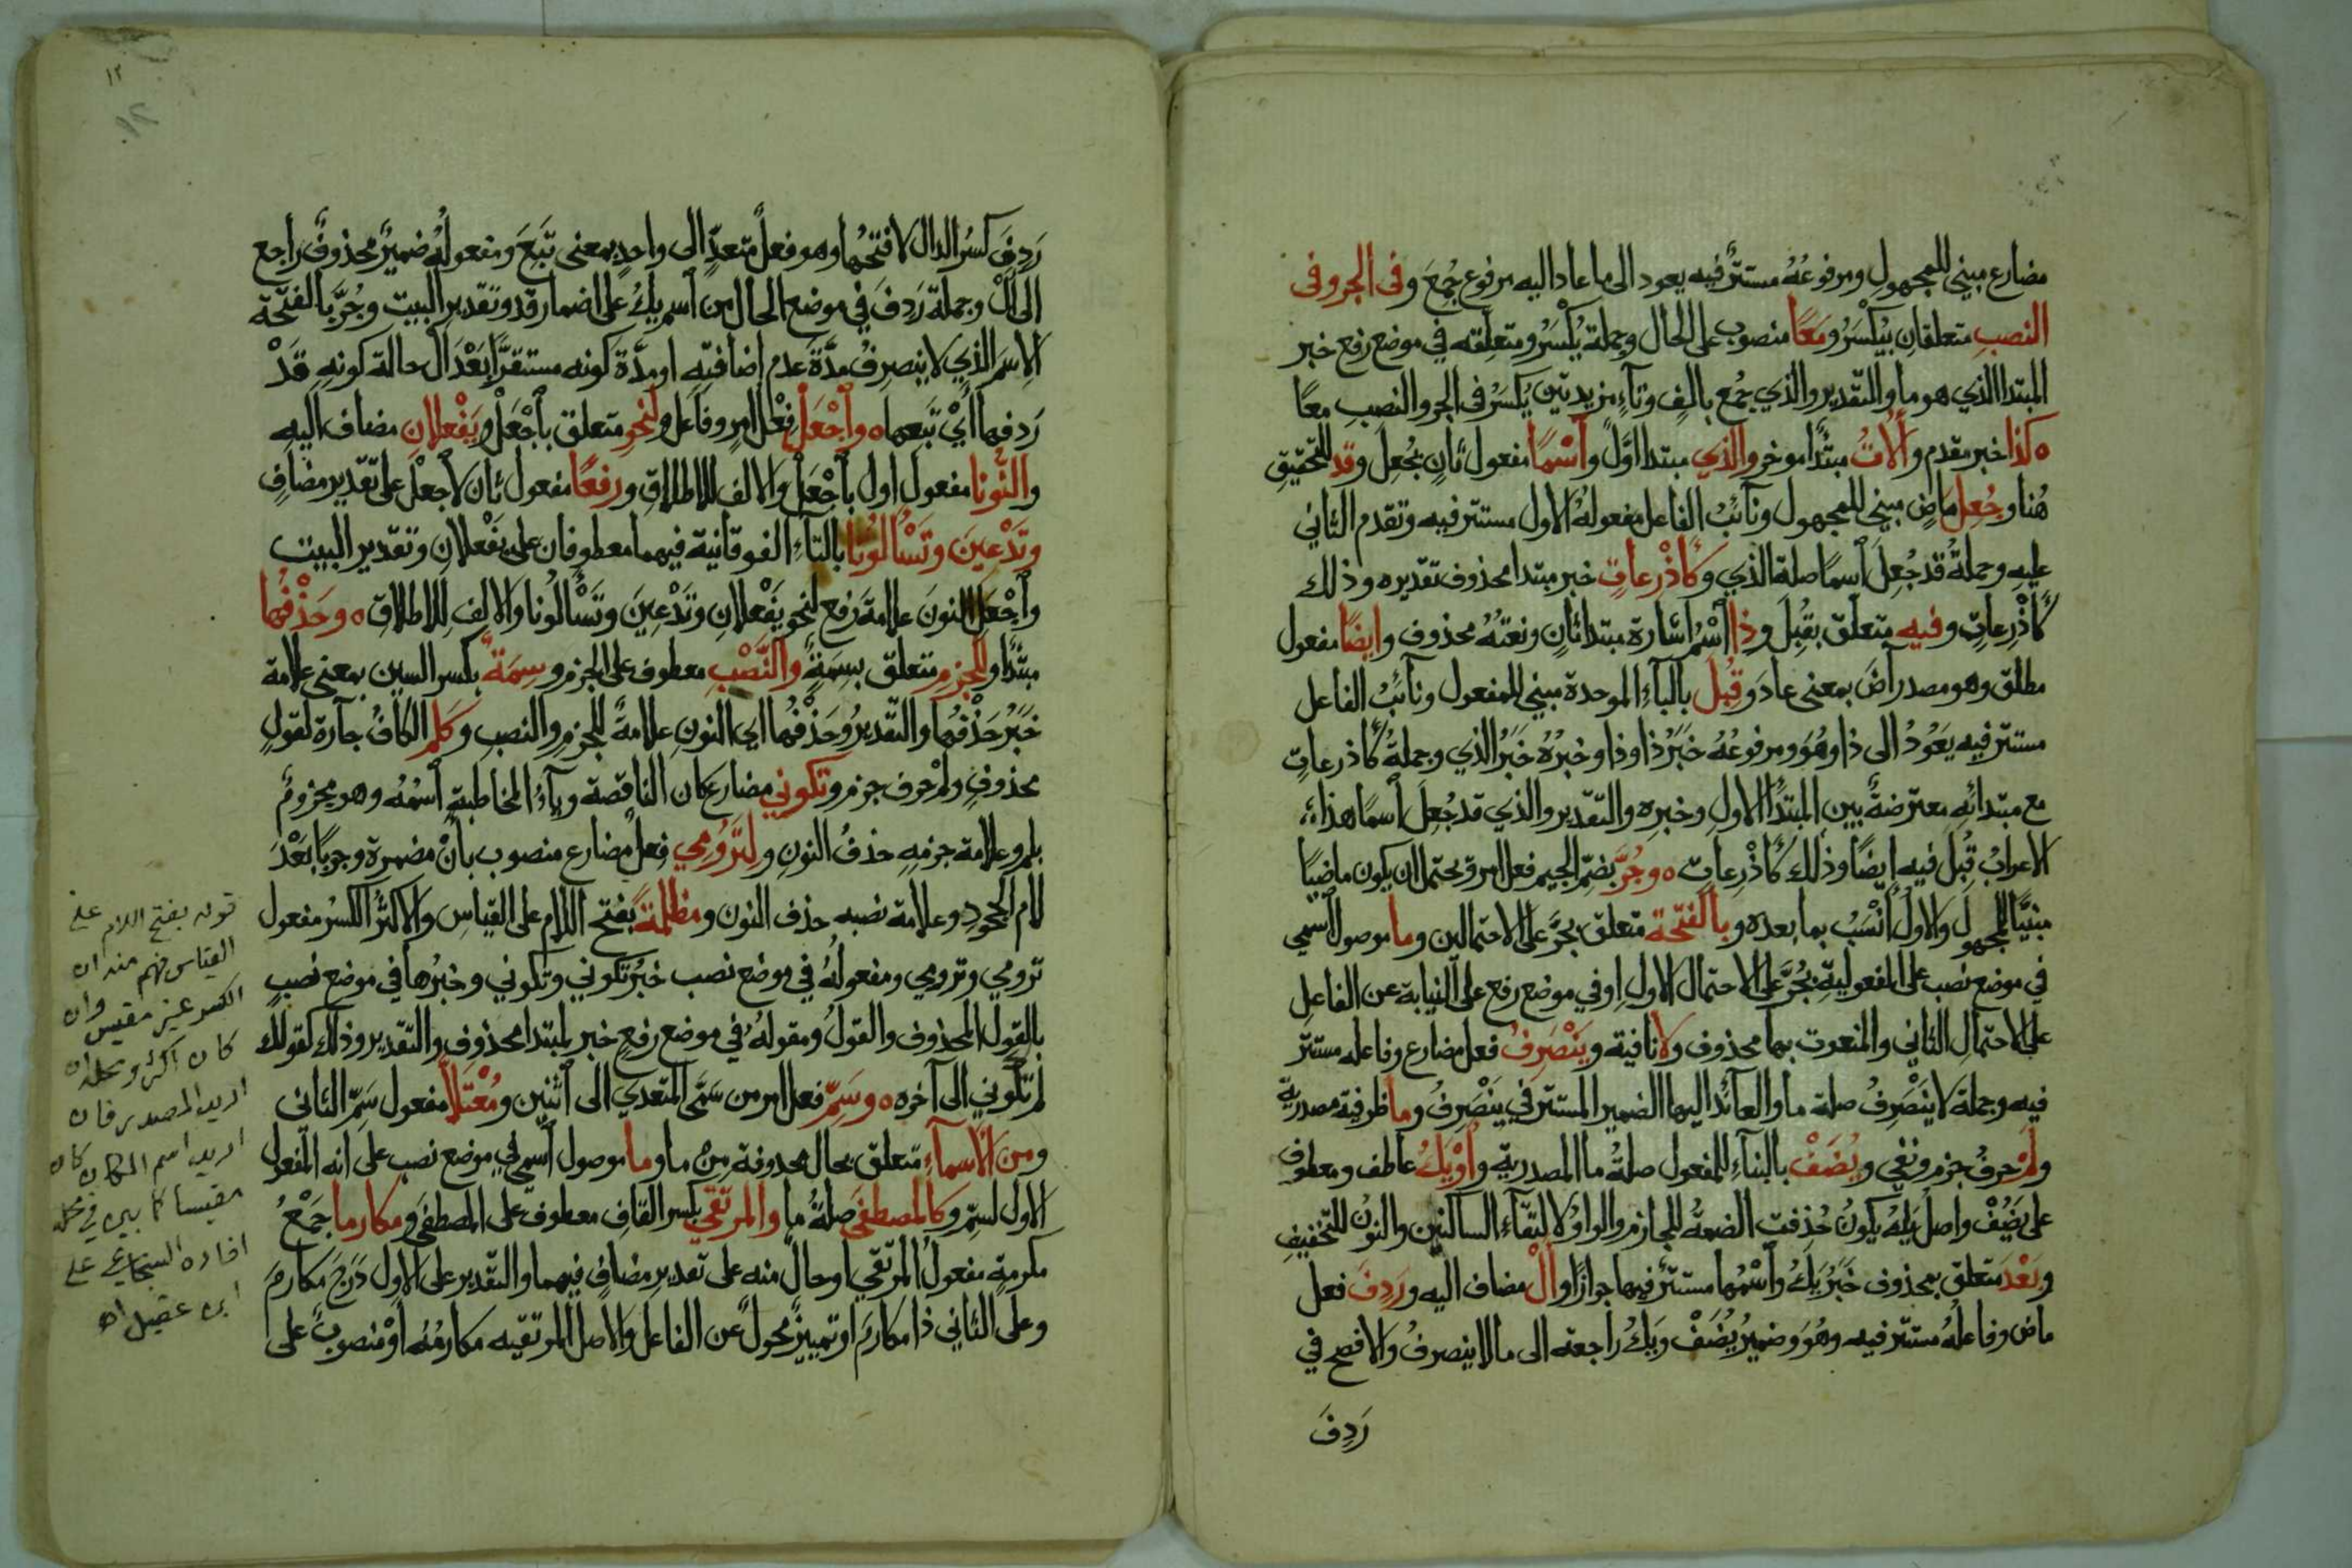 مضارع مبني للمجهول ومرفوعُهُ مستترٌ فيه يعود الى ما عاد اليه مرفوع جُمِعَ وفى الجر وفى
النصبِ متعلقانِ بيُكْسَرُ ومَعًا منصوب على الحال وجملة يُكْسَرُ ومتعلقه في موضع رفع خبر
المبتدا الذي هو ما والتقدير والذي جُمع بالفٍ وتاءٍ مزيدتين يُكسَرُ فى الجر والنصبِ معًا
ه كذا خبر مقدم وأُلاتُ مبتدأ موخر والذي مبتدا اوَّلٌ وٱسْمًا مفعول ثانٍ بجُعِل وقد للتحقيقِ
هُنا وجُعِل ماضٍ مبني للمجهول ونآئبُ الفاعل مفعولهُ الاول مستتر فيه وتقدم الثاني
عليهِ وجملةُ قد جُعِلَ ٱسمًا صلة الذي وكأَذْرِعاتٍ خبر مبتدا محذوف تقديره وذلك
كأَذْرِعاتٍ وفيه متعلق بقُبِلَ وذا ٱسْمُ اشارة مبتدا ثانٍ ونعتُهُ محذوف وايضًا مفعول
مطلق وهو مصدر آضَ بمعنى عادَ وقُبِلْ بالبآءِ الموحدة مبني للمفعول ونآئبُ الفاعل
مستتر فيه يَعُوْدُ الى ذا وهُوَ ومرفوعُهُ خَبَرُ ذا وذا وخبرُهُ خَبَرُ الذي وجملةُ كأذرعاتٍ
مع مبتدائِهِ معترضةٌ بين المبتدأ الاولِ وخبرِه والتقدير والذي قد جُعِلَ ٱسمًا هذا
الاعرابُ قُبِلَ فيه ايضًا وذلك كأَذْرِعاتٍ ه وجُرَّ بضمِّ الجيم فعل امر ويحتمل ان يكون ماضيًا
مبنيًّا للمجهول والاولُ أنْسَبُ بما بعده وبالفتحة متعلق بجُرَّ على الاحتمالين وما موصول ٱسمي
في موضع نصب على المفعولية بجُرَّ على الاحتمال الاولِ او في موضع رفع على النيابة عن الفاعلِ
على الاحتمالِ الثاني والمنعوت بها محذوف ولا نافية ويَنْصَرِفُ فعل مضارع وفاعله مستتر
فيه وجملة لا يَنْصَرِفُ صلة ما والعآئد اليها الضمير المستتر في يَنْصَرِفُ وما ظرفية مصدرية
ولَمْ حرفُ جزم ونفي ويُضَفْ بالبنآءِ للمفعول صلةُ ما المصدرية واَوْ يَكُ عاطف ومعطوف
على يُضَفْ واصل يَكُ يكونُ حُذفت الضمةُ للجازم والواوُ لالتقآءِ الساكنين والنونُ للتخفيفِ
وبَعْدَ متعلق بمحذوف خَبَرُ يَكُ وٱسْمُها مستترٌ فيها جوازًا واَلْ مضاف اليه ورَدِفَ فعل
ماض وفاعلهُ مستتر فيه وهُوَ وضميرُ يُضَفْ ويَكُ راجعة الى ما لا ينصرفُ والافصح في
رَدِفَ
١٢
١٢
رَدِفَ كسرُ الدال لا فتحُها وهو فعلٌ متعدٍّ الى واحدٍ بمعنى تَبِعَ ومفعولهُ ضميرٌ محذوفٌ راجع
الى اَلْ وجملة رَدِفَ في موضع الحال من ٱسم يكُ على اضمار قد وتقدير البيت وجُرَّ بالفتحة
الاسمَ الذي لا ينصرفُ مدَّةَ عدم اضافتِهِ او مدَّة كونه مستقرًّا بَعْدَ ال حالة كونهِ قَدْ
رَدِفها أيْ تَبِعها ه وٱجْعَلْ فِعْل امرٍ وفاعل ولنحوِ متعلق بٱجْعَلْ ويَفْعلانِ مضاف اليه
والنُّونا مفعول اول بٱجْعَلْ والالف للاطلاق ورفعًا مفعول ثان لاجعلْ على تقدير مضافٍ
وتَدْعِينَ وتَسْألُونا بالتآءِ الفوقانية فيهما معطوفان على يَفْعلانِ وتقدير البيت
وٱجْعَلِ النونَ علامةَ رفع لنحو يَفْعَلانِ وتَدْعِينَ وتَسْألُونا والالف للاطلاقِ ه وحَذْفُها
مبتدأ وللجزمِ متعلق بسِمَةٍ والنَّصْبِ معطوف على الجزم وسِمَةٌ بكسر السين بمعنى علامة
خَبَرُ حَذْفُها والتقديرُ وحَذْفُها اي النونِ علامةٌ للجزمِ والنصبِ وكلم الكافُ جارة لقولٍ
محذوفٍ ولم حرف جزم وتكوني مضارع كان الناقصة ويآءُ المخاطبةِ ٱسمُهُ وهو مجزومٌ
بلم وعلامة جزمِهِ حذفُ النونِ ولِتَرُوْمِي فعل مضارع منصوب بأنْ مضمرة وجوبًا بَعْدَ
لام الجحودِ وعلامة نصبه حذف النون ومظلمةً بفتح اللام على القياسِ والاكثرُ الكسرُ مفعول
ترومي وترومي ومفعولُهُ في موضع نصب خبرُ تكوني وتكوني وخبرُها في موضع نصبٍ
بالقول المحذوف والقولُ ومقولهُ في موضع رفعٍ خبر لمبتدا محذوفٍ والتقدير وذلك كقولك
لم تكوني الى آخره ه وسَمِّ فعل امر من سَمَّى المتعدي الى ٱثنين ومُعْتَلاًّ مفعول سَمِّ الثانى
ومن الاسمآءِ متعلق بحال محذوفة مِنْ ما وما موصول ٱسمي في موضع نصب على انه المفعول
الاول لسمِّ وكالمصطفَى صلةُ ما والمرتقي بكسر القافِ معطوف على المصطفى ومكارما جَمْعُ
مكرمةٍ مفعول المرتقي او حال منه على تقدير مضافٍ فيهما والتقدير على الاول دَرَجَ مكارمَ
وعلى الثاني ذا مكارمَ او تمييزٌ محولٌ عن الفاعل والاصل المرتقيه مكارمُهُ اوْ منصوبٌ على
قوله بفتح اللام على
القياس فهم منه ان
الكسر غير مقيس وان
كان اكثر ومحله ان
اريد المصدر فان
اريد اسم المكان كان
مقيسا كما بين في محله
افاده السجاعي على
ابن عقيل اه